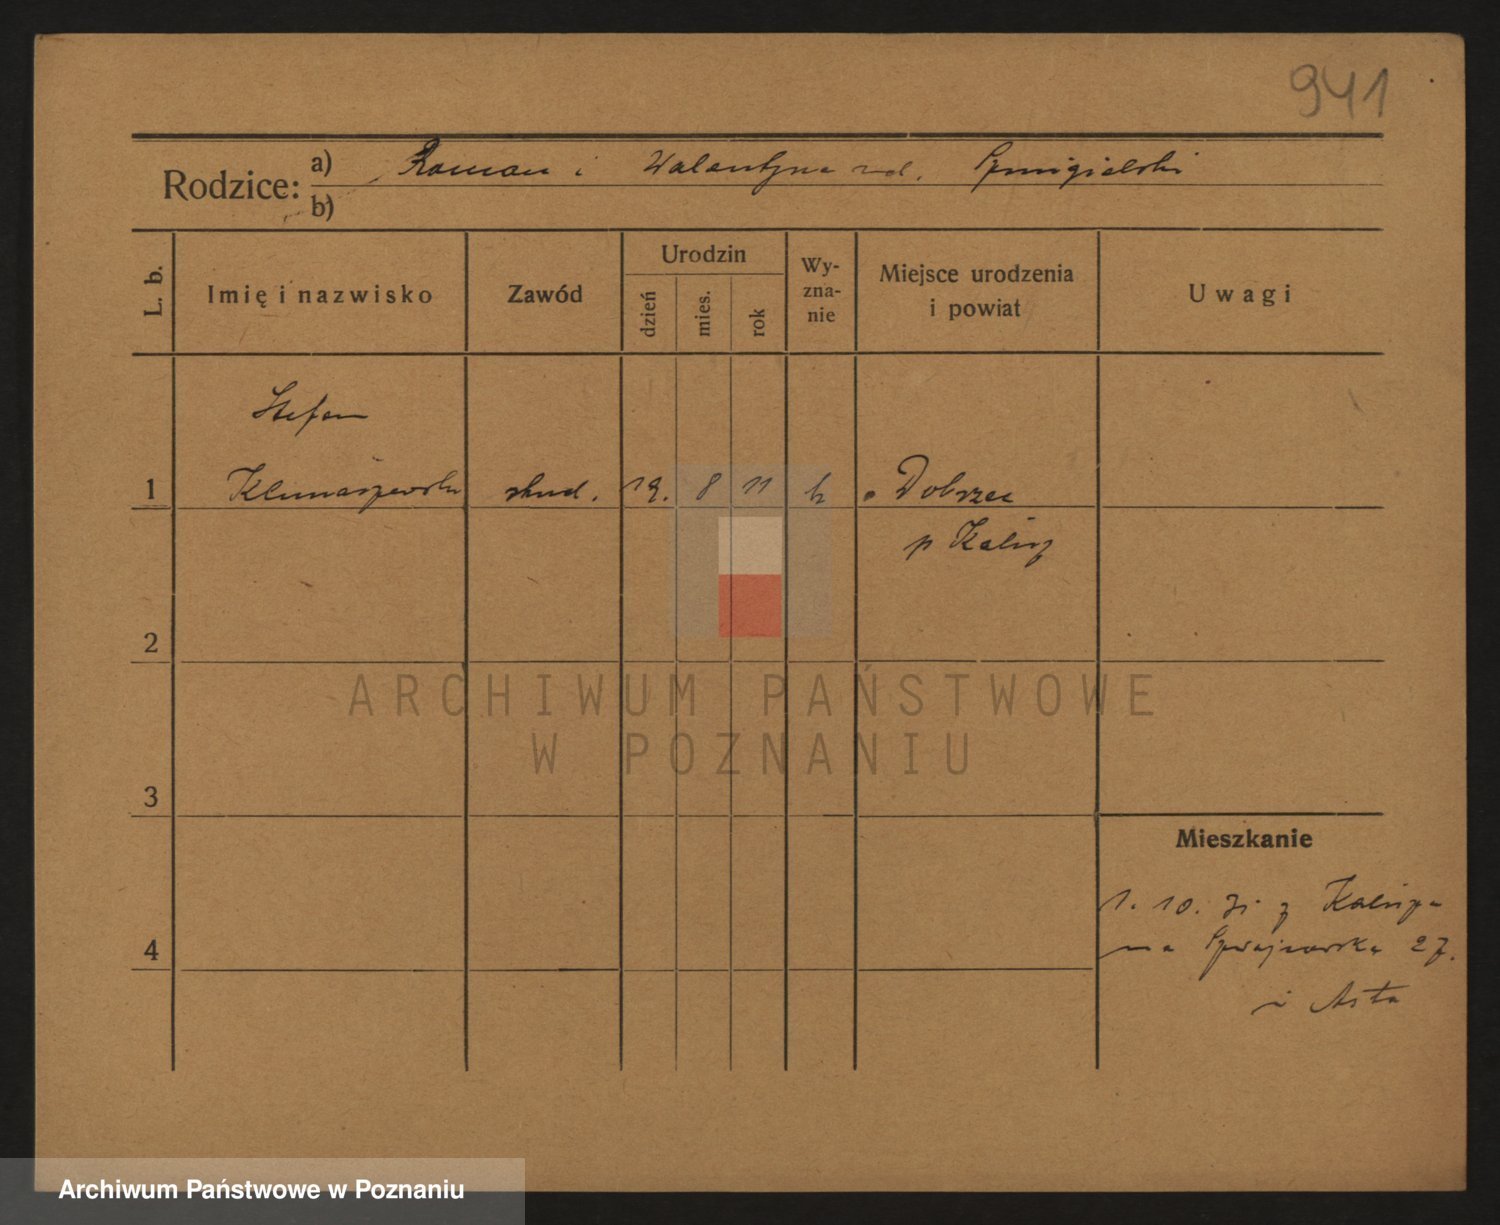 941
Rodzice: a) Roman i Walentyna rod. Szmigielski
b)
L. b.
Imię i nazwisko
Zawód
Urodzin
dzień
mies.
rok
Wy-
zna-
nie
Miejsce urodzenia
i powiat
Uwagi
Stefan
1 Klimaszewski stud. 19. 8 11 k Dobrzec
p Kalisz
2
ARCHIWUM PAŃSTWOWE
W POZNANIU
3
Mieszkanie
1. 10. 31 z Kalisza
na 27.
4
Archiwum Państwowe w Poznaniu